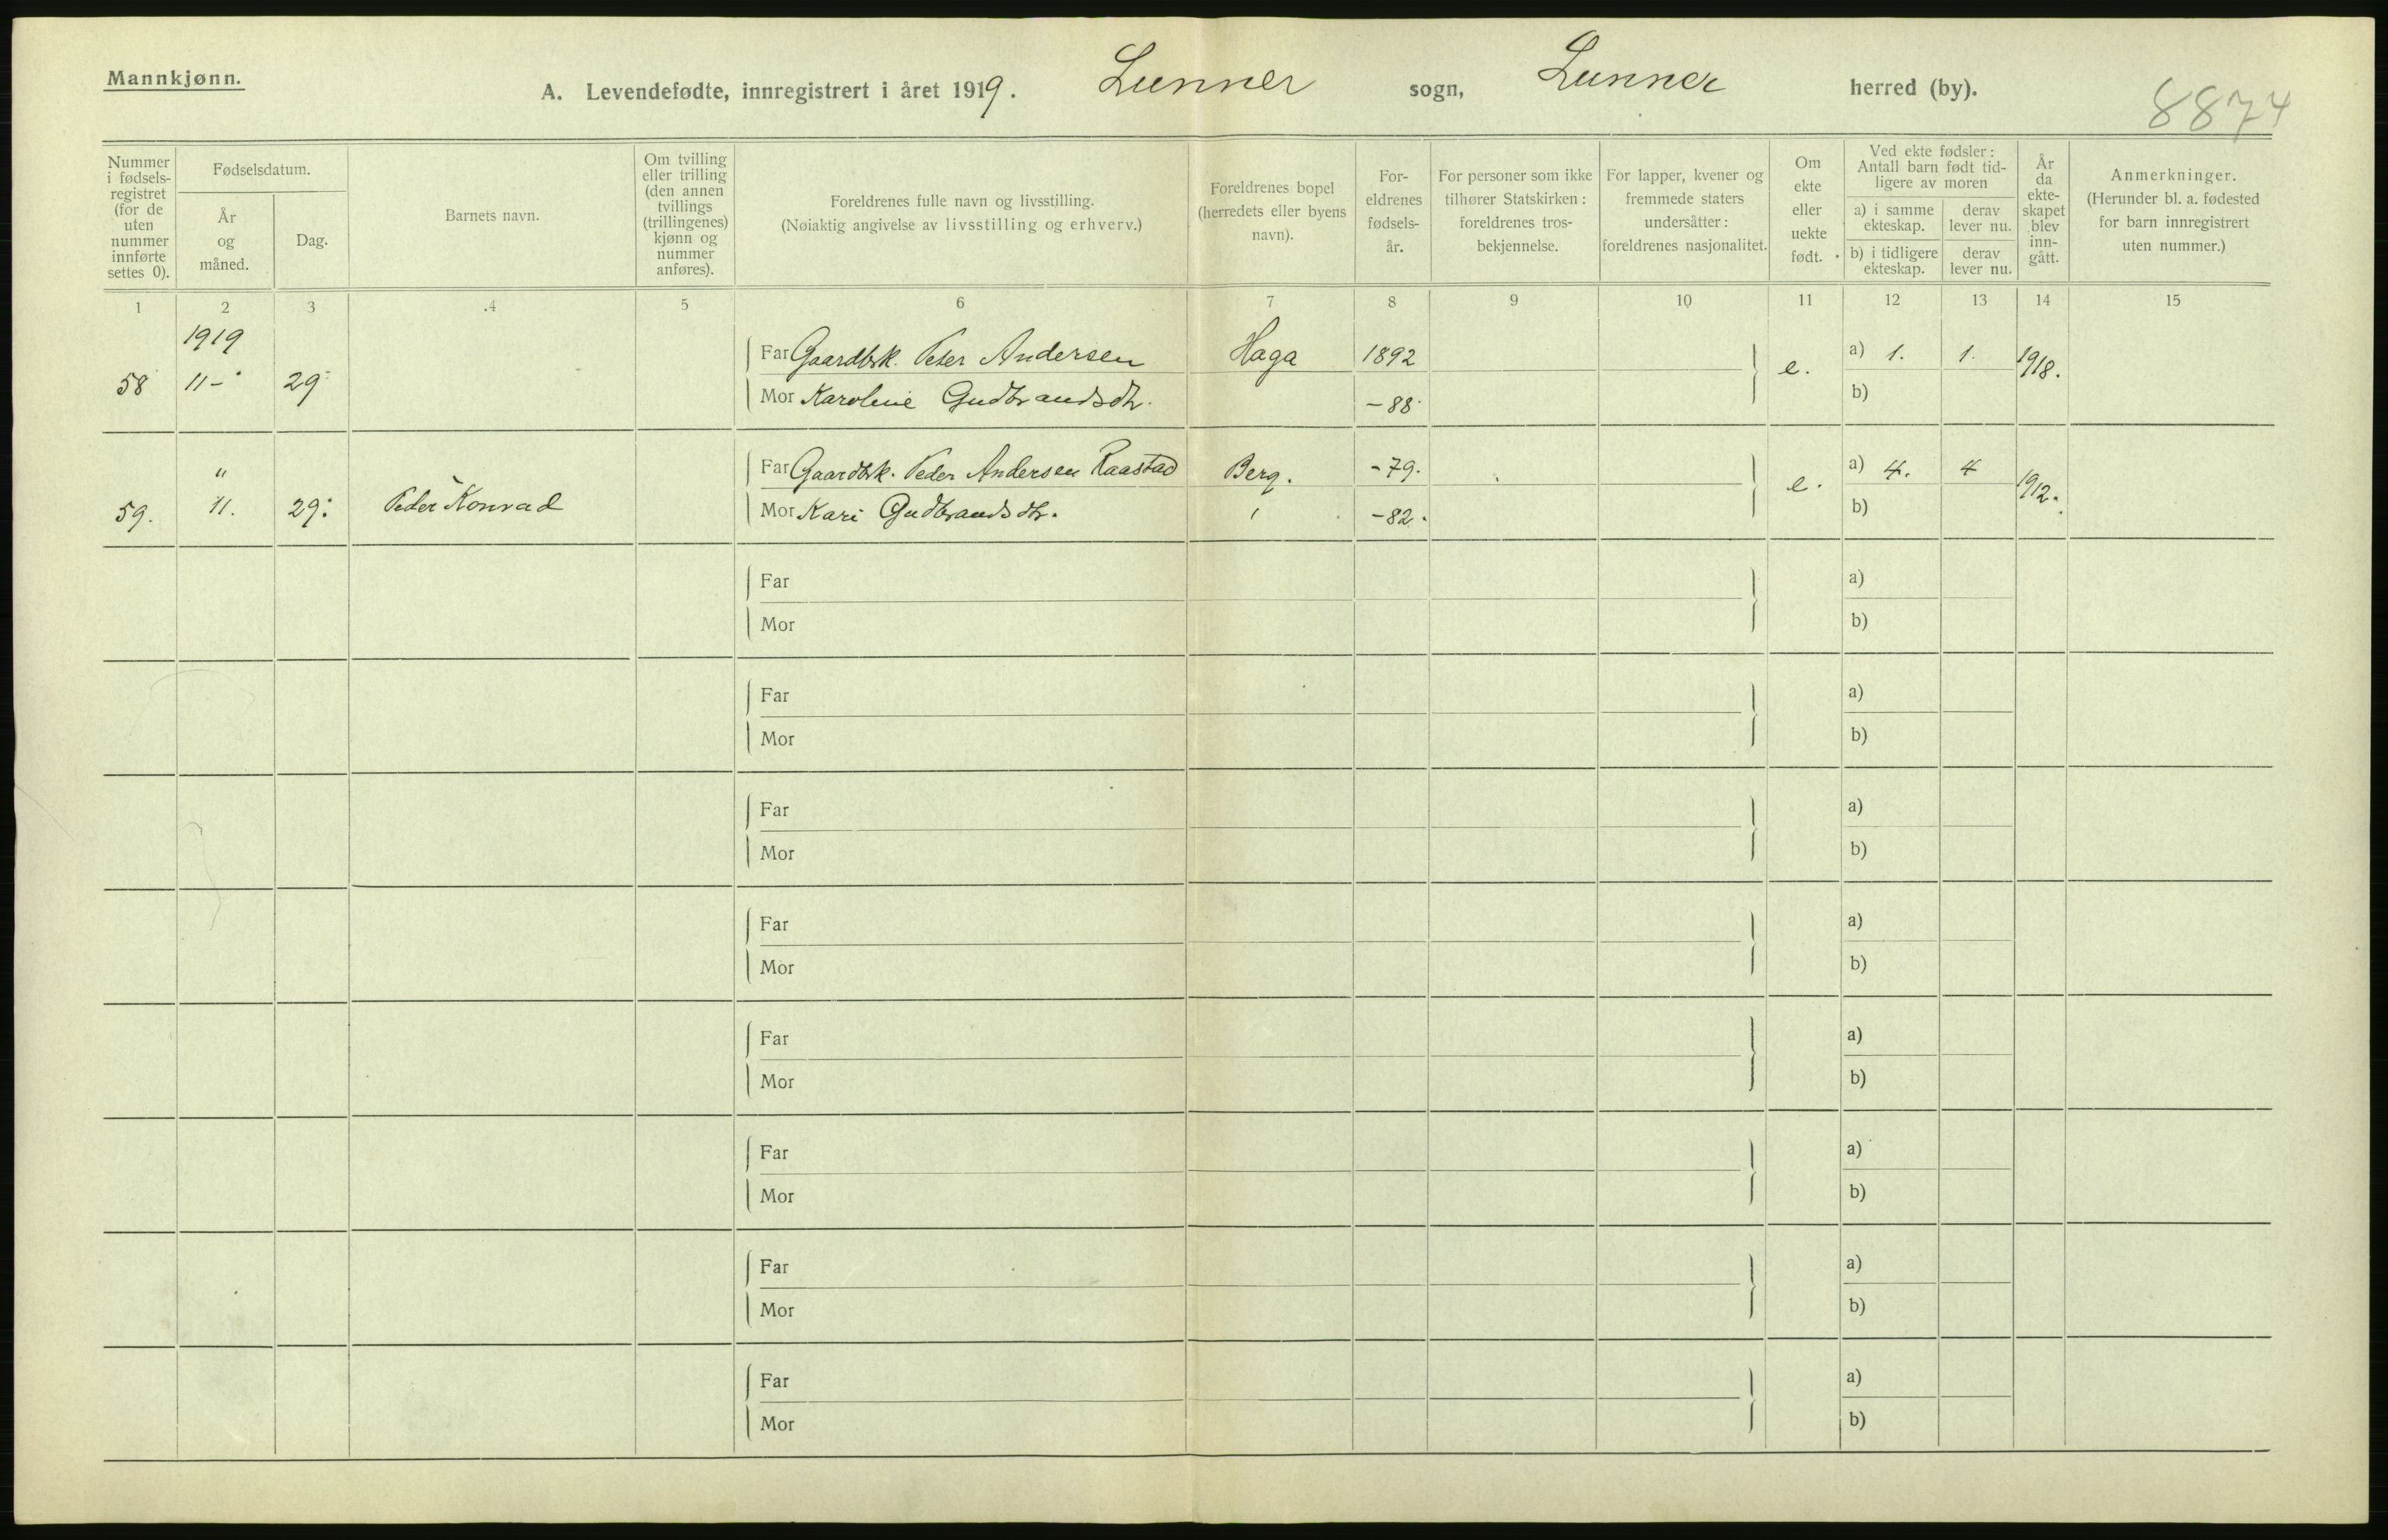 Mannkjønn.
A. Levendefødte, innregistrert i året 1919. Lunner sogn, Lunner herred (by).
8874
Nummer i fødsels-registret (for de uten nummer innførte settes 0).
Fødselsdatum.
År og måned.
Dag.
Barnets navn.
Om tvilling eller trilling (den annen tvillings (trillingenes) kjønn og nummer anføres).
Foreldrenes fulle navn og livsstilling.
(Nøiaktig angivelse av livsstilling og erhverv.)
Foreldrenes bopel (herredets eller byens navn).
For-eldrenes fødsels-år.
For personer som ikke tilhører Statskirken: foreldrenes tros-bekjennelse.
For lapper, kvener og fremmede staters undersåtter: foreldrenes nasjonalitet.
Om ekte eller uekte født.
Ved ekte fødsler: Antall barn født tid-ligere av moren
a) i samme ekteskap.
derav lever nu.
b) i tidligere ekteskap.
derav lever nu.
År da ekte-skapet blev inn-gått.
Anmerkninger.
(Herunder bl. a. fødested for barn innregistrert uten nummer.)
1 2 3 4 5 6 7 8 9 10 11 12 13 14 15
1919
Far Gaardbrk. Peter Andersen Haga 1892 a) 1. 1.
58 11- 29 e. 1918.
Mor Karoline Gudbrandsdtr. -88 b)
Far Gaardbrk. Peder Andersen Raastad Berg. -79. a) 4. 4
" e. 1912.
59. 11. 29. Peder Konrad Mor Kari Gudbrandsdtr. -82. b)
Far a)
Mor b)
Far a)
Mor b)
Far a)
Mor b)
Far a)
Mor b)
Far a)
Mor b)
Far a)
Mor b)
Far a)
Mor b)
Far a)
Mor b)